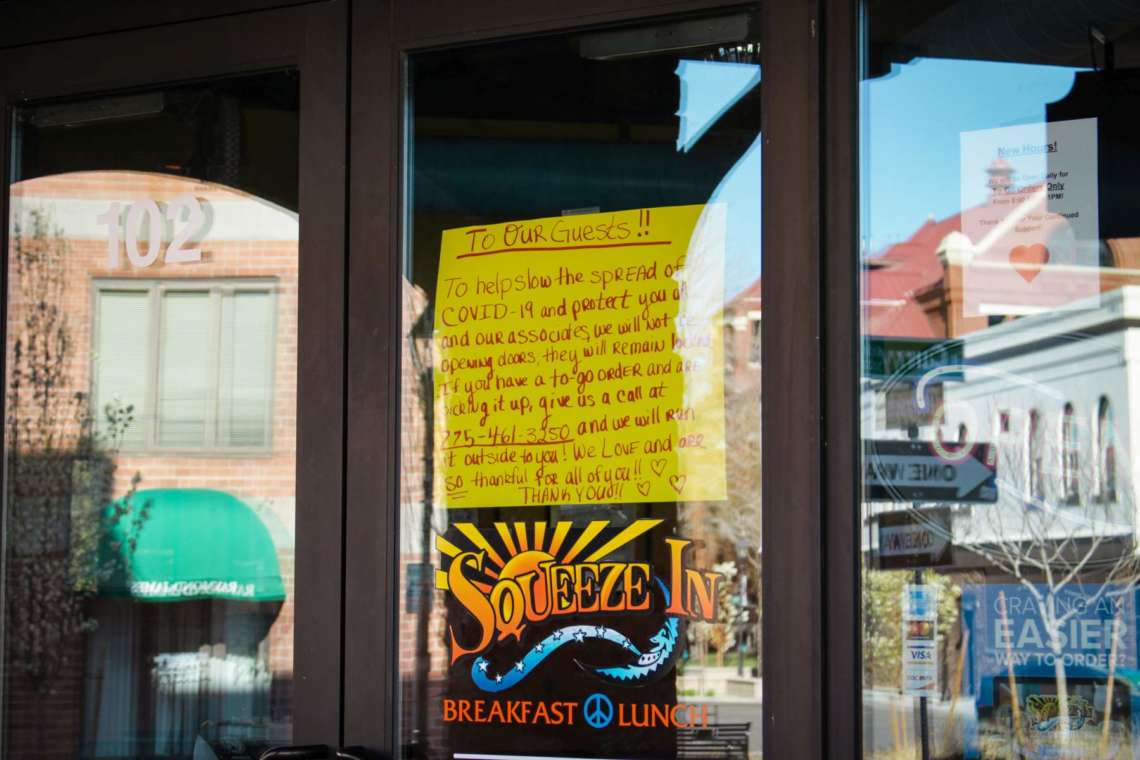 102
To Our Guests!!
To help slow the SPREAD of
COVID-19 and protect you all
and our associates, we will not be
opening doors, they will remain locked.
If you have a to-go order and are
picking it up, give us a call at
775-461-3250 and we will run
it outside to you! We Love and are
so thankful for all of you!!
THANK YOU!!
SQUEEZE IN
BREAKFAST LUNCH
New Hours!
Only
1PM!
Your Continued
Support!
ONE WAY
RAYMOND JAMES
VISA
CRAVING AN
EASIER
WAY TO ORDER?